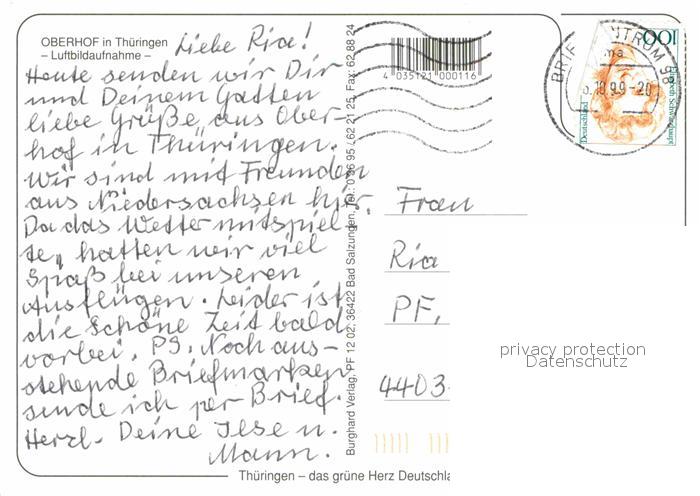 OBERHOF in Thüringen
– Luftbildaufnahme –
Liebe Ria!
Heute senden wir Dir
und Deinem Gatten
liebe Grüße aus Ober-
hof in Thüringen.
Wir sind mit Freunden
aus Niedersachsen hier.
Da das Wetter mitspiel
te, hatten wir viel
Spaß bei unseren
Ausflügen. Leider ist
die schöne Zeit bald
vorbei. PS. Noch aus-
stehende Briefmarken
sende ich per Brief.
Herzl. Deine Ilse u.
Mann.
Burghard Verlag, PF 12 02, 36422 Bad Salzungen, Tel.: 0 36 95 / 62 21 25, Fax: 62 88 24
4 035121 000116
100
Deutschland
BRIEFZENTRUM 98
.10.99-20
Frau
Ria
PF,
4403
privacy protection
Datenschutz
Thüringen – das grüne Herz Deutschla